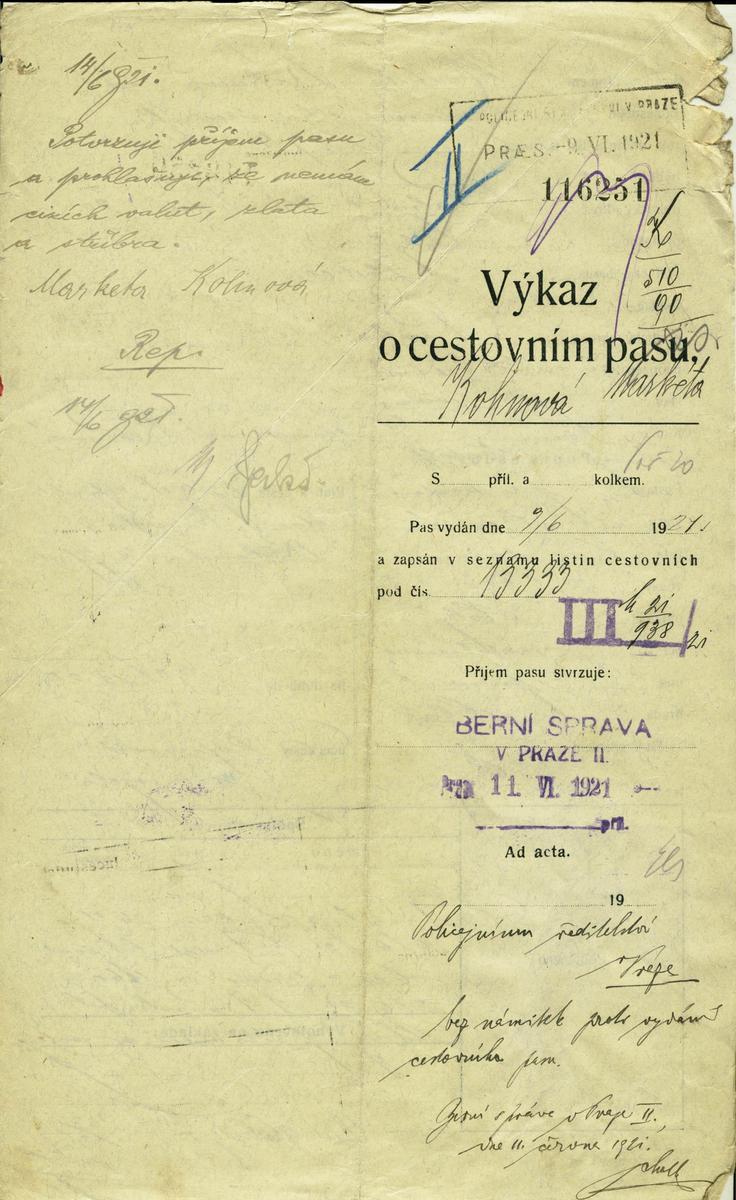 14/6 921.
Potvrzuji příjem pasu
a prohlašuji, že nemám
cizích valut, zlata
a stříbra.
Marketa Kohnová
Rep.
14/6 921.
II
V PRAZE
PRÆS. -9. VI. 1921
116251
K
510
90
Výkaz
o cestovním pasu,
Kohnová Markéta
S příl. a kolkem.
Pas vydán dne 9/6 1921.
a zapsán v seznamu listin cestovních
pod čís. 13333
III
938/21
Příjem pasu stvrzuje:
BERNÍ SPRAVA
V PRAZE II.
11. VI. 1921
Ad acta.
19
Policejnímu ředitelství
v Praze
bez námitek proti vydání
cestovního pasu.
Berní správa v Praze II.,
dne 11. června 1921.